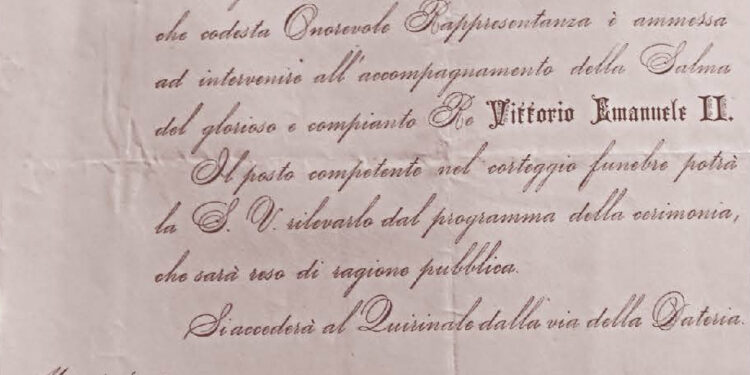 che codesta Onorevole Rappresentanza è ammessa
ad intervenire all'accompagnamento della Salma
del glorioso e compianto Re Vittorio Emanuele II.
Il posto competente nel corteggio funebre potrà
la S. V. rilevarlo dal programma della cerimonia,
che sarà reso di ragione pubblica.
Si accederà al Quirinale dalla via della Dateria.